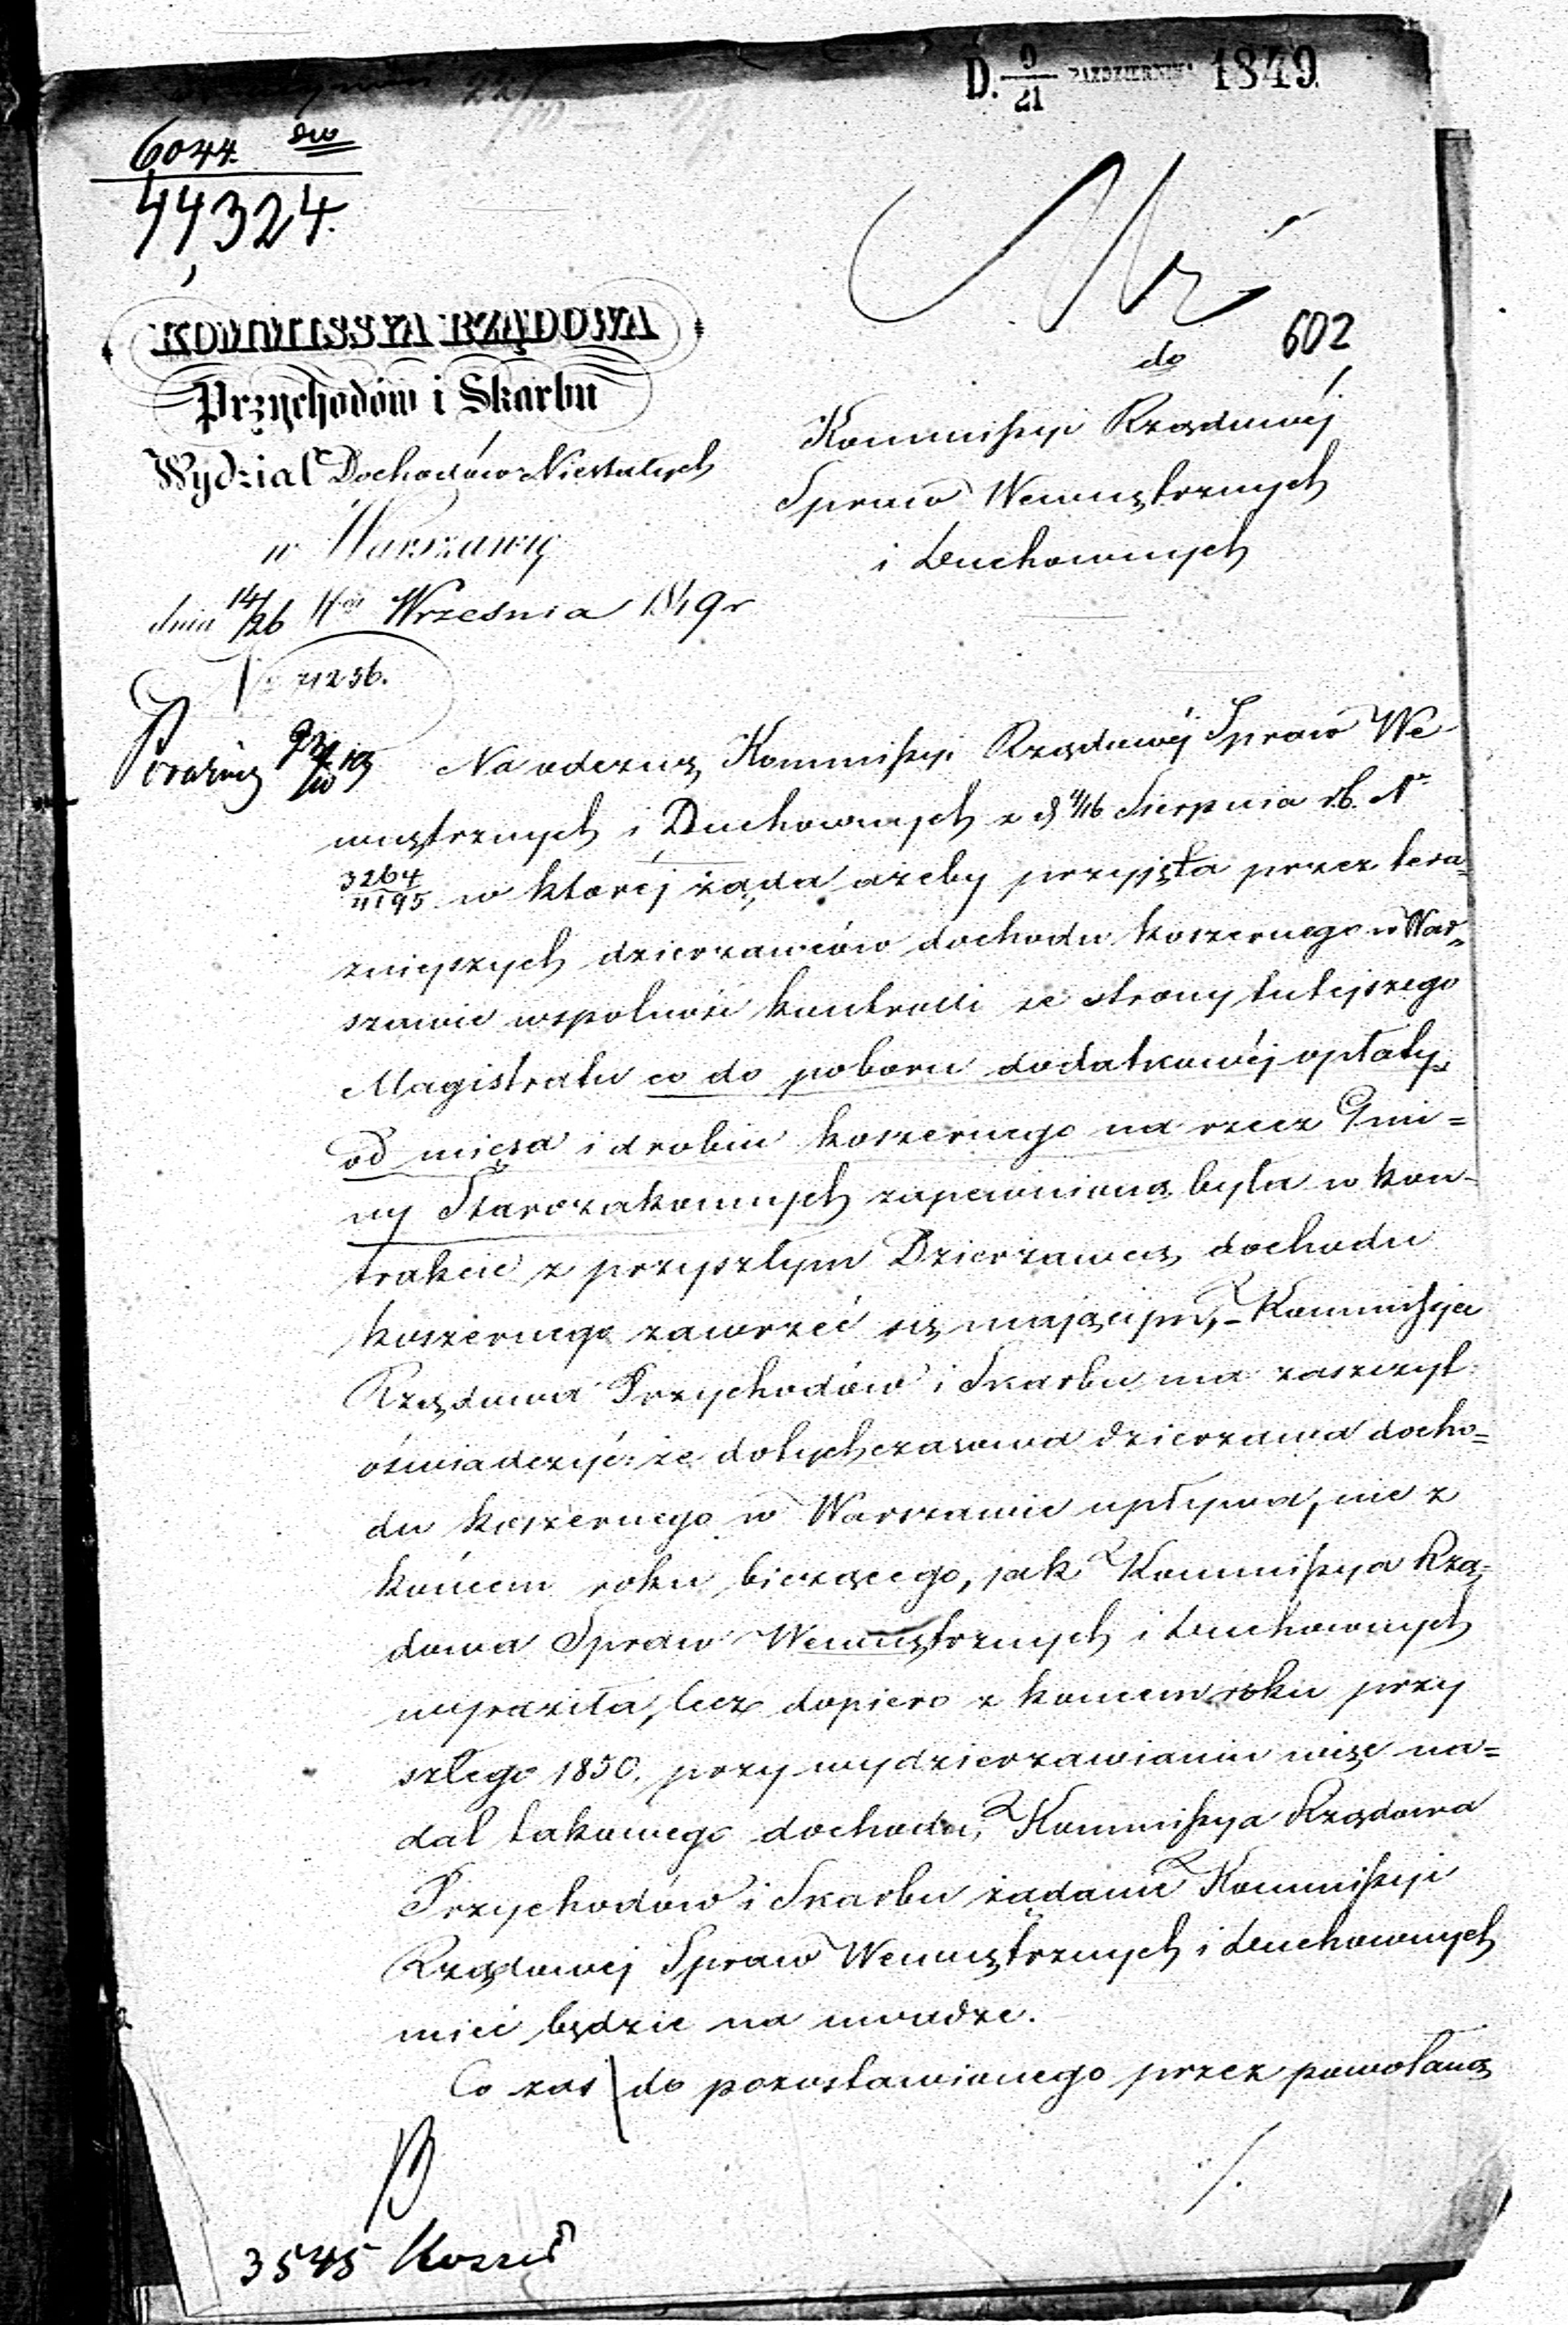 D. 9/21 PAZDZIERNIKA 1849
6044
44324.
602
KOMMISSYA RZĄDOWA
Przychodów i Skarbu
Wydział Dochodów Niestałych
w Warszawie
dnia 14/26 Września 1849 r
N 71236.
do
Kommissyi Rządowéj
Spraw Wewnętrznych
i Duchownych
Na odezwę Kommissyi Rządowéj Spraw We-
wnętrznych i Duchownych z d 4/16 Sierpnia r.b. Nr
3264/11195 w któréj żąda ażeby przyjęta przez tera=
zniejszych dzierzawców dochodu koszernego w War=
szawie wspólność kontrolli ze strony tutejszego
Magistratu co do poboru dodatkowéj opłaty
od mięsa i drobiu koszernego na rzecz Gmi=
ny Starozakonnych zapewnioną była w kon-
trakcie z przyszłym Dzierzawcą dochodu
koszernego zawrzeć się mającym, - Kommissya
Rządowa Przychodów i Skarbu ma zaszczyt
oświadczyć: że dotychczasowa dzierzawa docho=
du koszernego w Warszawie upływa, nie z
końcem roku bieżącego, jak Kommissya Rzą=
dowa Spraw Wewnętrznych i Duchownych
wyraziła, lecz dopiero z końcem roku przy
szłego 1850. przy wydzierzawianiu więc na=
dal takowego dochodu, Kommissya Rządowa
Przychodów i Skarbu żądanie Kommissyi
Rządowej Spraw Wewnętrznych i Duchownych
mieć będzie na uwadze.
Co zaś do pozostawionego przez powołaną
./.
3545